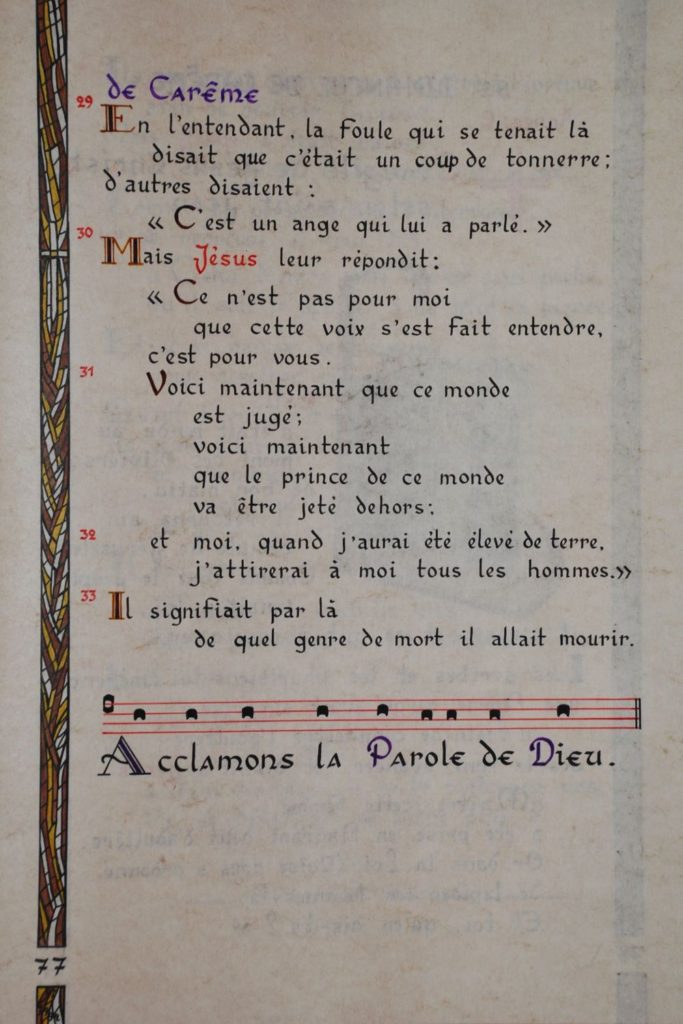 de Carême
29
En l'entendant, la foule qui se tenait là
disait que c'était un coup de tonnerre;
d'autres disaient :
« C'est un ange qui lui a parlé. »
30
Mais Jésus leur répondit:
« Ce n'est pas pour moi
que cette voix s'est fait entendre,
c'est pour vous.
31
Voici maintenant que ce monde
est jugé;
voici maintenant
que le prince de ce monde
va être jeté dehors;
32
et moi, quand j'aurai été élevé de terre,
j'attirerai à moi tous les hommes.»
33
Il signifiait par là
de quel genre de mort il allait mourir.
Acclamons la Parole de Dieu.
77